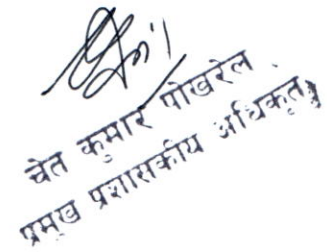 चेत कुमार पोखरेल
प्रमुख प्रशासकीय अधिकृत